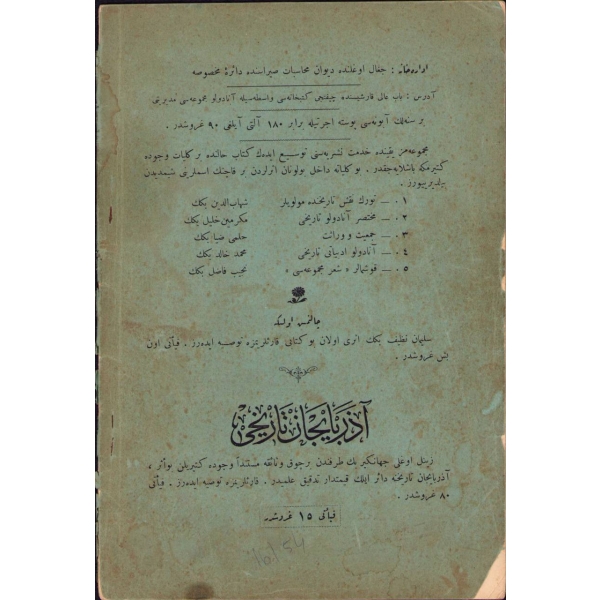 اداره‌خانه : جغال اوغلنده دیوان محاسبات صیراسنده دائرهٔ مخصوصه
آدرس : باب عالی قارشیسنده چیغیجی كتبخانه‌سی واسطه‌سیله آنادولو مجموعه‌سی مدیریتی
بر سنه‌لك آبونه‌سی پوسته اجرتیله برابر ۱۸۰ آلتی آیلغی ۹۰ غروشدر .
مجموعه‌مز یقینده خدمت نشریه‌سنی توسیع ایده‌رك كتاب حالنده بر كلیات وجوده
كتیرمكه باشلایه‌جقدر . بو كلیاته داخل بولونان اثرلردن بر قاچنك اسملرینی شیمدیدن
بیلدیریيورز .
۰۱ — تورك نفس تاریخنده مولویلر شهاب‌الدین بك
۰۲ — مختصر آنادولو تاریخی مكرمین خلیل بك
۰۳ — جمعیت و وراثت حلمی ضیا بك
۰٤ — آنادولو ادبیاتی تاریخی محمد خالد بك
۰۵ — قوشمالر « شعر مجموعه‌سی » نجیب فاضل بك
چالنمش اولكه
سلیمان نظیف بك اثری اولان بو كتابی قارئلریمزه توصیه ایده‌رز . فیأتی اون
بش غروشدر .
آذربایجان تاریخی
زینل اوغلی جهانكیر بك طرفندن بر چوق وثائقه مستنداً وجوده كتیریلن بو اثر ،
آذربایجان تاریخنه دائر ایلك قیمتدار تدقیق علمیدر . قارئلریمزه توصیه ایده‌رز . فیأتی
۸۰ غروشدر .
فیأتی ۱۵ غروشدر